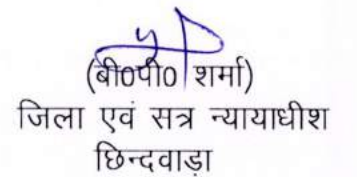 (बी0पी0 शर्मा)
जिला एवं सत्र न्यायाधीश
छिन्दवाडा